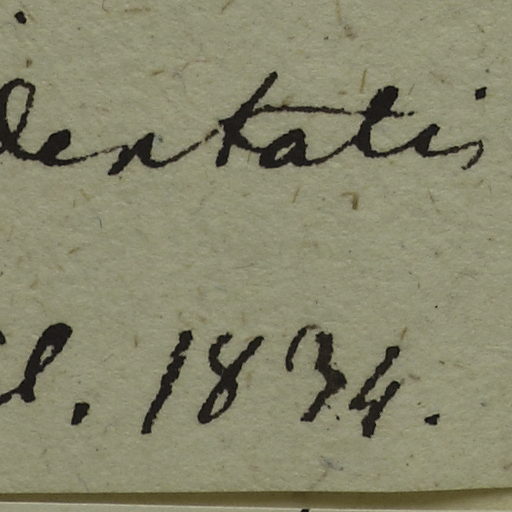 dentatis
l. 1834.